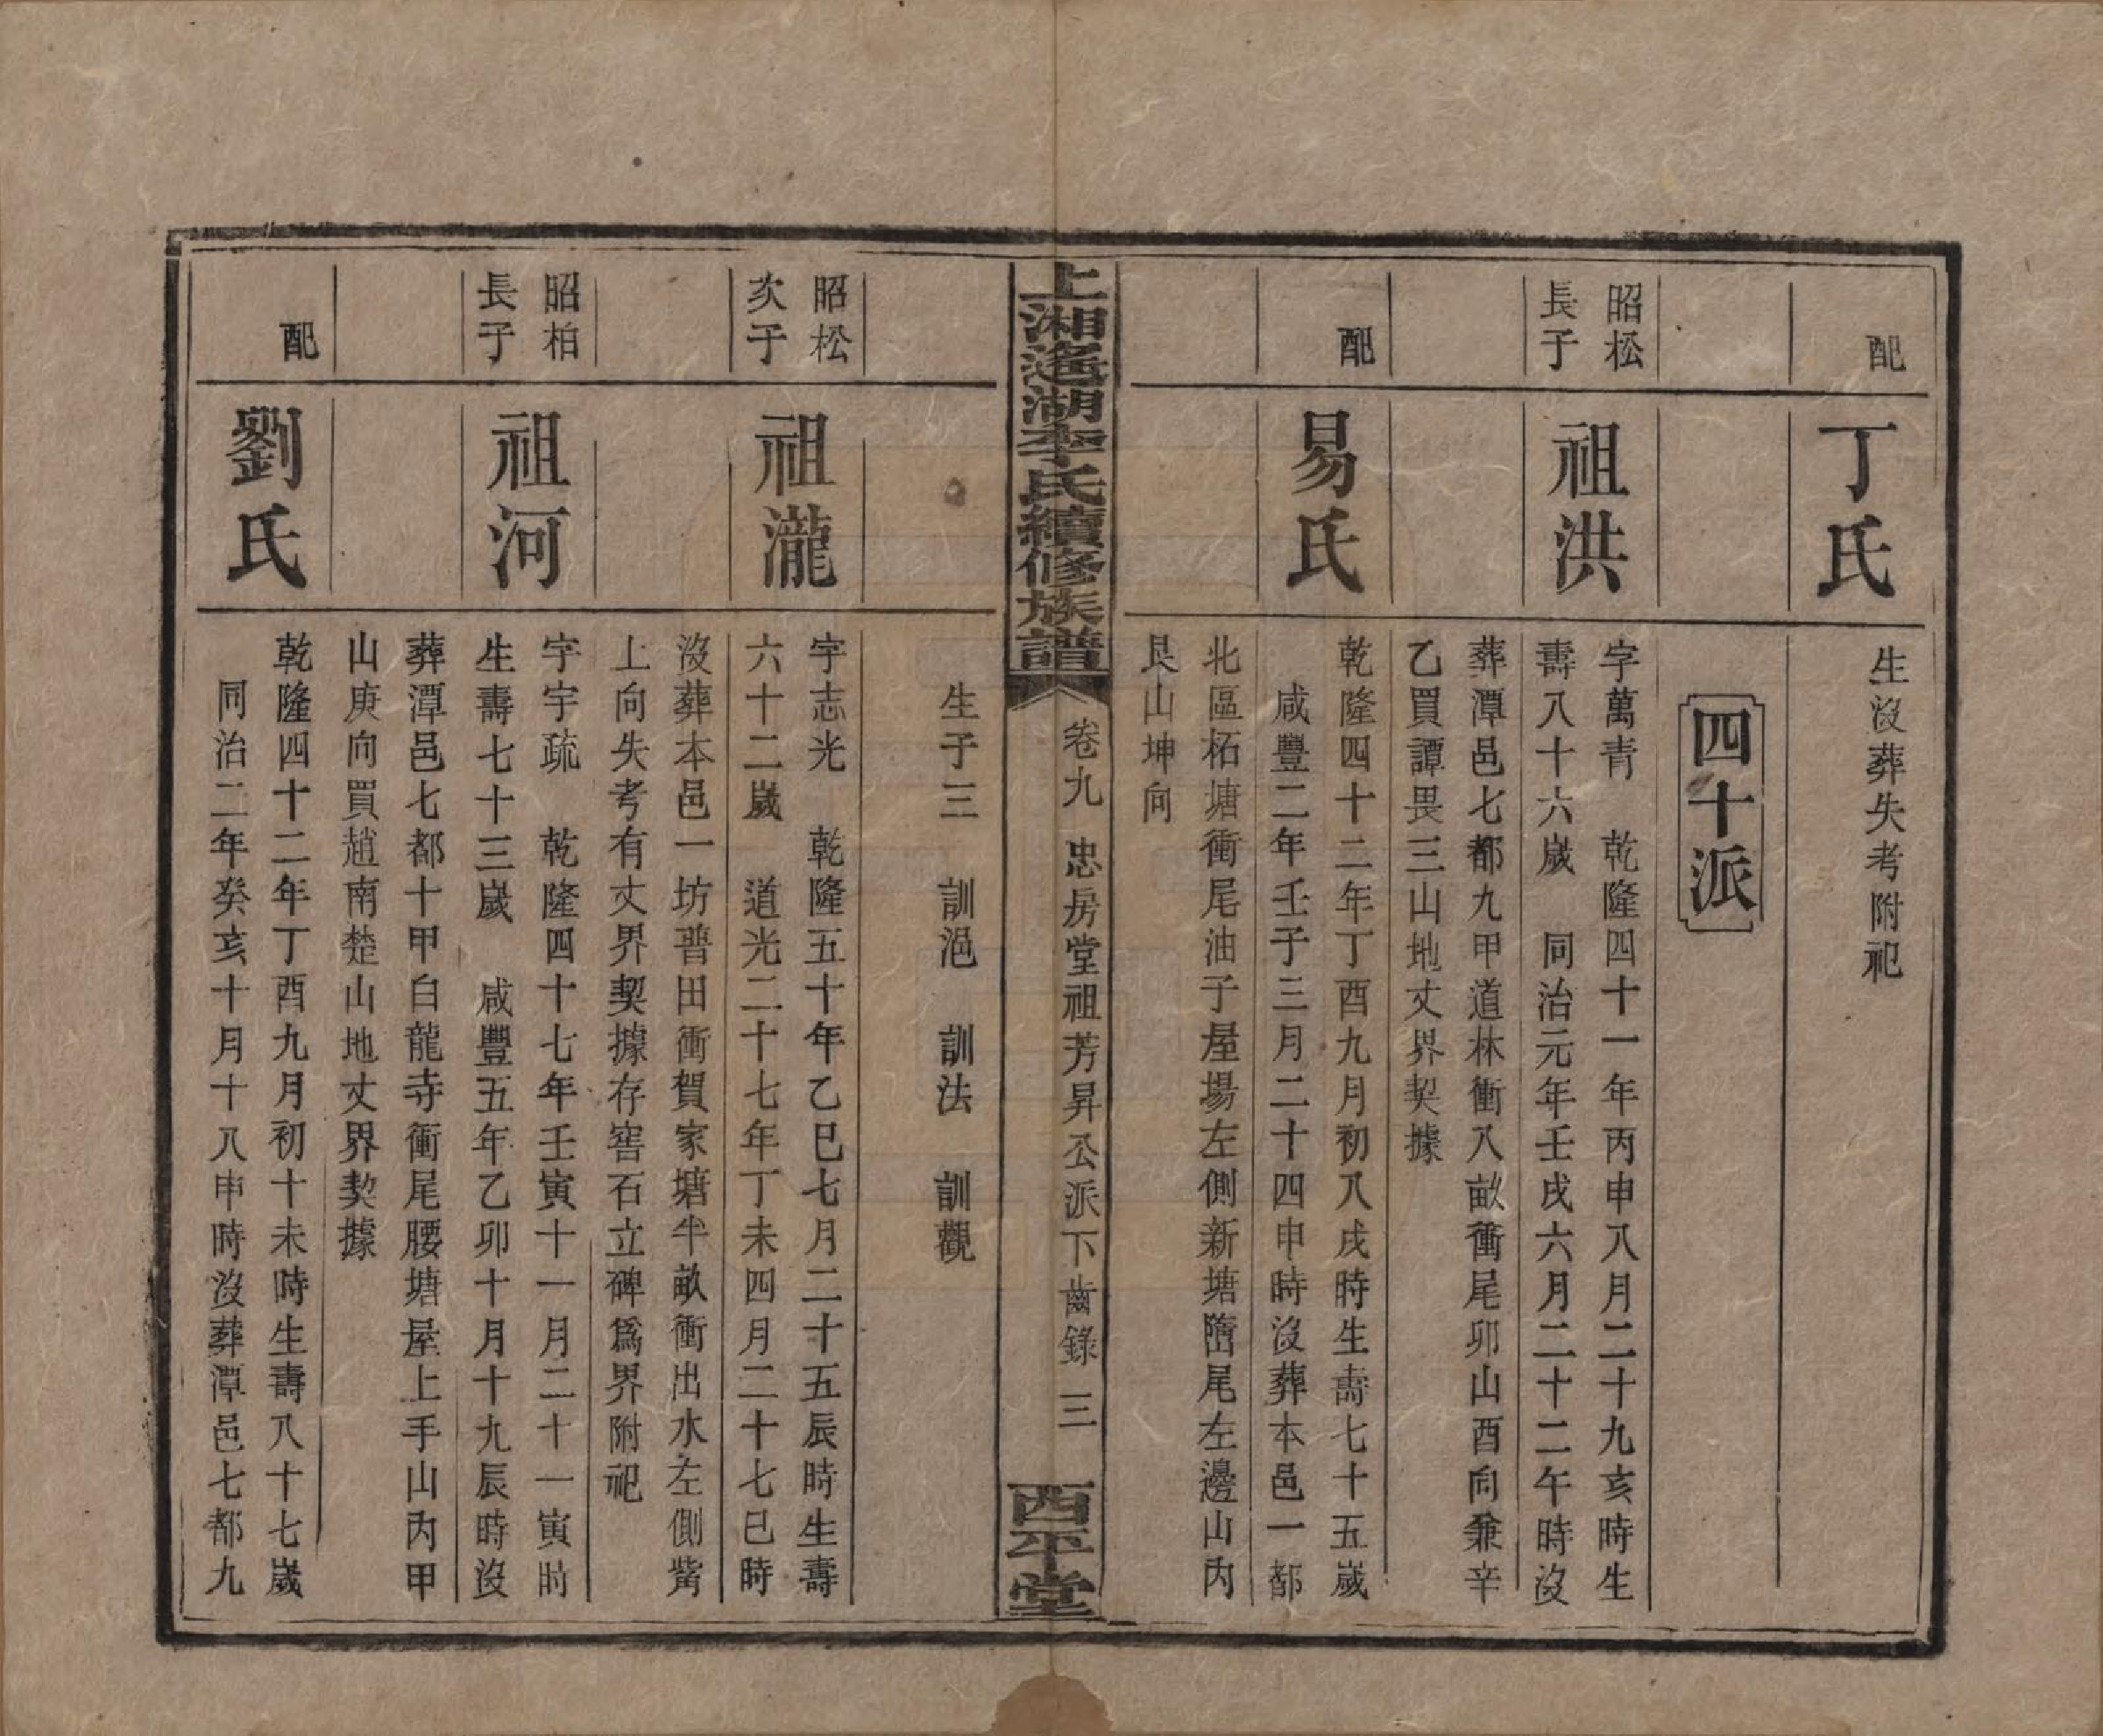 配
丁氏
生沒葬失考附祀
四十派
昭松
長子
祖洪
字萬青　乾隆四十一年丙申八月二十九亥時生
壽八十六歲　同治元年壬戌六月二十二午時沒
葬潭邑七都九甲道林衝八畝衝尾卯山酉向兼辛
乙買譚畏三山地丈界契據
配
易氏
乾隆四十二年丁酉九月初八戌時生壽七十五歲
咸豐二年壬子三月二十四申時沒葬本邑一都
北區柘塘衝尾油子屋場左側新塘墮尾左邊山內
艮山坤向
上湘遙湖李氏續修族譜
卷九　忠房堂祖芳昇公派下齒錄　三
西平堂
生子三　訓浥　訓法　訓觀
昭松
次子
祖瀧
字志光　乾隆五十年乙巳七月二十五辰時生壽
六十二歲　道光二十七年丁未四月二十七巳時
沒葬本邑一坊普田衝賀家塘半畝衝出水左側觜
上向失考有丈界契據存窖石立碑爲界附祀
昭柏
長子
祖河
字宇疏　乾隆四十七年壬寅十一月二十一寅時
生壽七十三歲　咸豐五年乙卯十月十九辰時沒
葬潭邑七都十甲白龍寺衝尾腰塘屋上手山丙甲
山庚向買趙南楚山地丈界契據
配
劉氏
乾隆四十二年丁酉九月初十未時生壽八十七歲
同治二年癸亥十月十八申時沒葬潭邑七都九